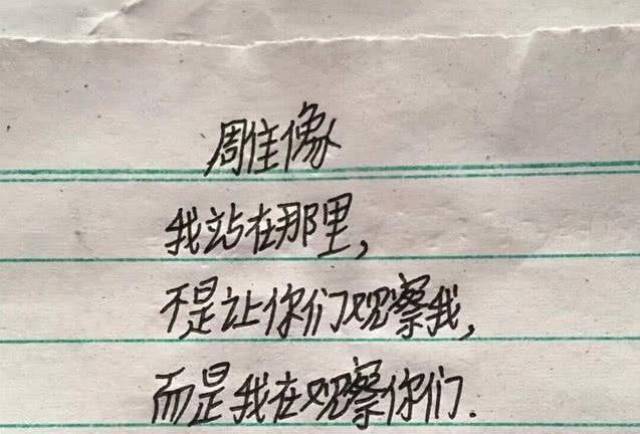 雕像
我站在那里，
不是让你们观察我，
而是我在观察你们.